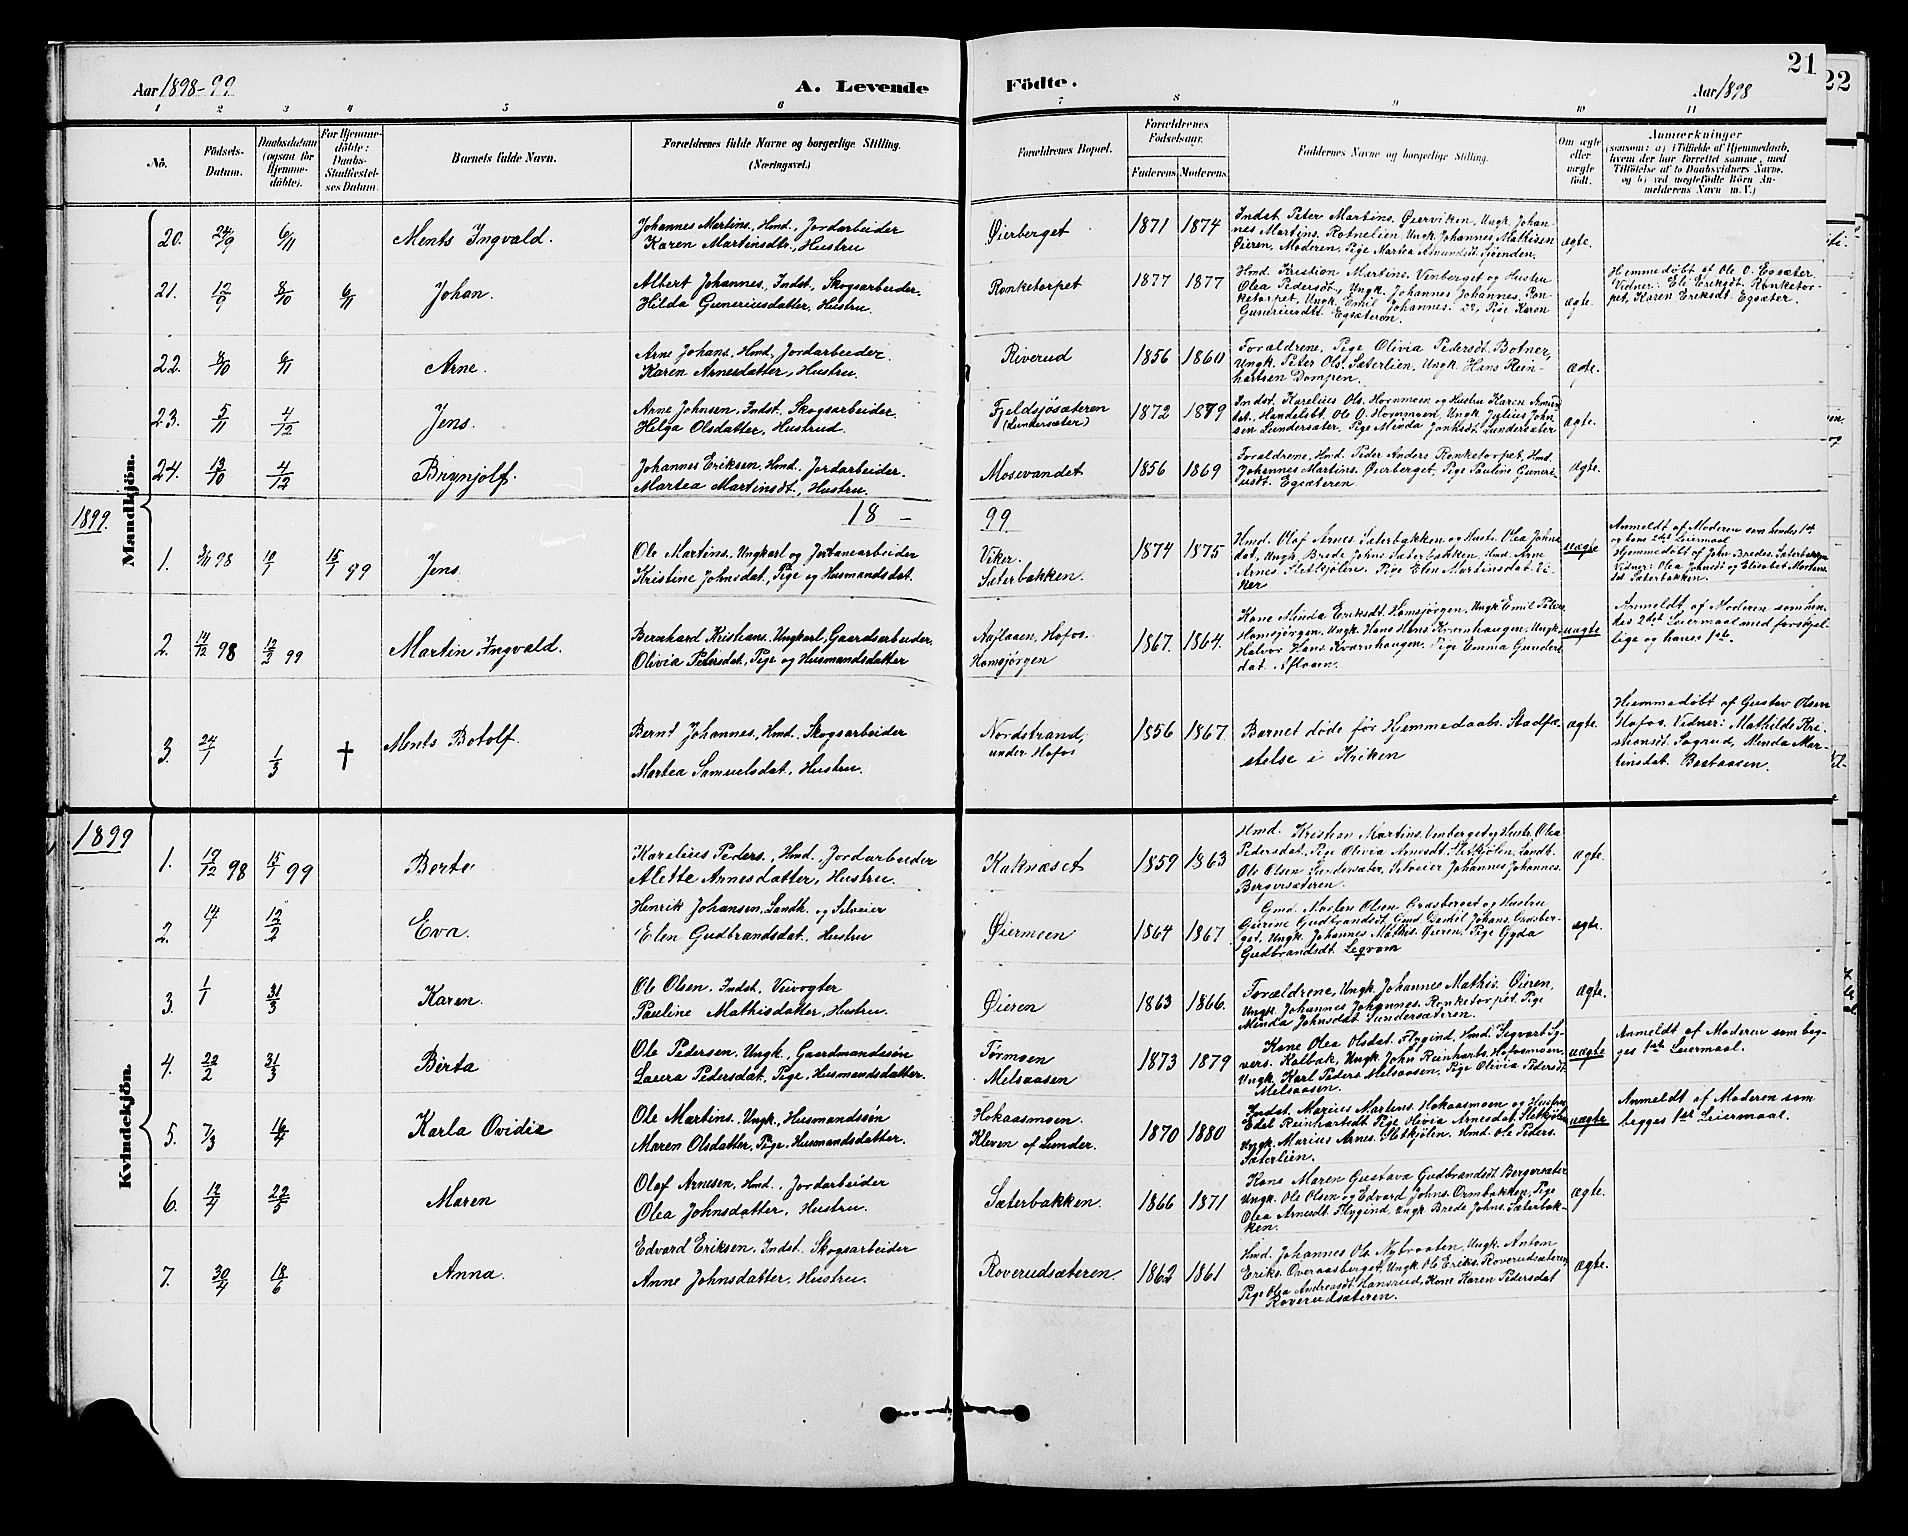 21
22
Aar 1898-99
A. Levende
Födte.
Aar 1898
1 2 3 4 5 6 7 8 9 10 11
No.
Födsels-
Datum.
Daabsdatum
(ogsaa for
Hjemme-
döbte).
For Hjemme-
döbte:
Daabs-
Stadfæstel-
ses Datum.
Barnets fulde Navn.
Forældrenes fulde Navne og borgerlige Stilling.
(Næringsvei.)
Forældrenes Bopæl.
Forældrenes
Födselsaar.
Faderens Moderens
Faddernes Navne og borgerlige Stilling.
Om ægte
eller
uægte
födt.
Anmærkninger
(saasom: a) i Tilfælde af Hjemmedaab,
hvem der har forrettet samme, med
Tilföielse af to Daabsvidners Navne,
og b) ved uægtefödte Börn An-
melderens Navn m. V.)
Mandkjön.
20. 24/9 6/11 Ments Ingvald.
Johannes Martins, Hmd, Jordarbeider
Karen Martinsdtr, Hustru
Øierberget 1871 1874
Indst. Peter Martins. Øierviken, Ungk. Johan-
nes Martins. Rotnelien, Ungk. Johannes Mathisen
Øieren, Moderen, Pige Martea Amundsdt. Sjøenden.
ægte.
21. 12/9 8/10 6/11 Johan.
Albert Johannes, Indst, Skogsarbeider.
Hilda Guneriusdatter, Hustru.
Rønketorpet 1877 1877
Hmd. Kristian Martins. Vinberget og Hustru
Olea Pedersdt., Ungk. Johannes Johannes. Røn-
ketorpet, Ungk. Emil Johannes. Do, Pige Karen
Guneriusdt. Egsæteren.
ægte.
Hjemmedøbt af Ole O. Egsæter
Vidner: Eli Eriksdt. Rønketor-
pet, Karen Eriksdt. Egsæter.
22. 8/10 6/11 Arne.
Arne Johans, Hmd, Jordarbeider.
Karen Arnesdatter, Hustru.
Riverud 1856 1860
Forældrene, Pige Olivia Pedersdt. Botner,
Ungk. Peter Ols. Sæterlien, Ungk. Hans Rein-
hartsen Dompen.
ægte.
23. 5/11 4/12 Jens.
Arne Johnsen, Indst. Skogsarbeider.
Helga Olsdatter, Hustrud.
Fjeldsjøsæteren
(Lundersæter)
1872 1879
Indst. Karelius Ols. Hornmoen og Hustru Karen Amunds-
dat., Handelsbt. Ole O. Hornmoen, Ungk. Julius John-
sen Lundersæter, Pige Minda Jonksdt. Lundersæter
ægte.
24. 13/10 4/12 Brynjolf.
Johannes Eriksen, Hmd. Jordarbeider.
Martea Martinsdt., Hustru.
Mosevandet 1856 1869
Forældrene, Hmd. Peder Anders Rønketorpet, Hmd.
Johannes Martins. Øierberget, Pige Pauline Guneri-
usdt. Egsæteren
ægte.
1899. 18 - 99
1. 3/11 98 10/1 15/1 99 Jens.
Ole Martins, Ungkarl og Jernbanearbeider
Kristine Johnsdat, Pige og Husmandsdat.
Viker
Sæterbakken.
1874 1875
Hmd. Olaf Arnes Sæterbakken og Hustr. Olea Johns-
dat, Ungk. Brede Johns Sæterbakken, Hmd. Arne
Arnes. Sletkjølen. Pige Elen Martinsdat. Vi-
ker
uægte
Anmeldt af Moderen som hendes 1ste
og hans 2det Leiermaal
Hjemmedøbt af John Bredes. Sæterbakken
Vidner: Olea Johnsdt og Elisabet Mortens-
dt Sæterbakken.
2. 14/12 98 12/2 99 Martin Ingvald.
Bernhard Kristians. Ungkarl, Gaardsarbeider.
Olivia Petersdat, Pige og Husmandsdatter
Aaflaaen, Hofos.
Homsjørgen
1867. 1864.
Kone Minda Eriksdt. Homsjørgen, Ungk. Emil Peters
Homsjørgen, Ungk. Hans Hans. Kvarnhaugen, Ungk.
Halvor Hans. Kvarnhaugen. Pige Emma Gunders-
dat. Afloaen.
uægte
Anmeldt af Moderen som hen-
des 2det Leiermaal med forskjel-
lige og hans 1ste.
3. 24/1 1/3 † Ments Botolf.
Bernt Johannes, Hmd. Skogsarbeider
Martea Samuelsdat, Hustru.
Nordstrand,
under Hofos
1856 1867
Barnet døde før Hjemmedaabs. Stadfæ-
stelse i Kriken
ægte.
Hjemmedøbt af Gustav Olsen
Hofos. Vidner: Mathilde Kri-
stiansdt. Sagrud, Minda Mar-
tinsdat. Bastaasen.
Kvindekjön.
1899
1. 19/12 98 15/1 99 Berte
Karelius Peders., Hmd., Jordarbeider
Alette Arnesdatter, Hustru.
Kaknæset 1859 1863
Hmd. Kristian Martins. Vinberget og Hustr. Olea
Pedersdat, Pige Olivia Arnesdt. Sletkjølen, Landb.
Ole Olsen Lundersæter, Selveier Johannes Johannes.
Bergersæteren.
ægte.
2. 14 12/2 Eva.
Henrik Johansen, Landh. og Selveier
Elen Gudbrandsdat. Hustru
Øiermoen 1864 1867
Gmd. Morten Olsen Grasberget og Hustru
Gurine Gudbrandsdt, Gmd. Daniel Johans. Grasber-
get, Ungk. Johannes Mathis. Øieren, Pige Gyda
Gudbrandsdt. Legram
ægte.
3. 1/1 31/3 Karen.
Ole Olsen. Indst. Veivogter
Pauline Mathisdatter, Hustru.
Øieren 1863 1866.
Forældrene, Ungk. Johannes Mathis. Øieren,
Ungk. Johannes Johannes. Rønketorpet, Pige
Minda Johnsdat. Lundersæteren.
ægte.
4. 22/2 31/3 Berta
Ole Pedersen, Ungk. Gaardmandssön
Laura Pedersdat, Pige, Husmandsdatter.
Tørmoen
Melsaasen
1873 1879
Kone Olea Olsdat. Flygind, Hmd. Sigvart Sy-
vers. Kalbak, Ungk. John Reinharts. Hofosmoen,
Ungk. Karl Peders Melsaasen, Pige Olivia Pedersdt.
Melsaasen.
uægte
Anmeldt af Moderen som beg-
ges 1ste Leiermaal.
5. 7/3 16/4 Karla Ovidia
Ole Martins. Ungk., Husmandssön
Maren Olsdatter, Pige, Husmandsdatter.
Hokaasmoen.
Kleven af Lunder.
1870 1880
Indst. Marius Martins. Hokaasmoen og Hustru
Edel Reinhartsdt Pige Olivia Arnesdat Sletkjølen
Ungk. Marius Arnes. Sletkjølen. Hmd. Ole Peders.
Sæterlien.
uægte
Anmeldt af Moderen som
begges 1ste Leiermaal.
6. 12/4 22/5 Maren
Olaf Arnesen, Hmd., Jordarbeider
Olea Johnsdatter, Hustru.
Sæterbakken. 1866 1871
Kone Maren Gustava Gudbrandsdt Bergersæter
Ungk. Ole Olsen og Edvard Johns. Ormbakken, Pige
Olea Arnesdt. Flygind, Ungk. Brede Johns. Sæterbak-
ken.
ægte.
7. 30/4 18/6 Anna.
Edvard Eriksen, Indst. Skogsarbeider
Anne Johnsdatter, Hustru.
Roverudsæteren. 1862 1861
Hmd. Johannes Ols. Nybraaten, Ungk. Anton
Eriks. Overaasberget, Ungk. Ole Eriks. Roverudsæteren
Pige Olea Andreasdt. Hansrud, Kone Karen Pedersdat
Roverudsæteren.
ægte.